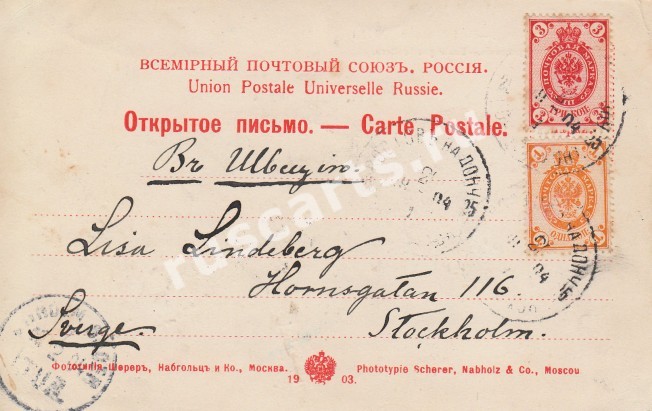 ВСЕМІРНЫЙ ПОЧТОВЫЙ СОЮЗЪ. РОССІЯ.
Union Postale Universelle Russie.
Открытое письмо. — Carte Postale.
Въ Швецію.
Lisa Lindeberg
Hornsgatan 116.
Sverge.
Stockholm.
Фототипія-Шереръ, Набгольцъ и Ко., Москва.
1903.
Phototypie Scherer, Nabholz & Co., Moscou
3 3
ПОЧТОВАЯ МАРКА
3 ТРИ КОП. 3
1 1
ОДНА КОП.
НА ДОНУ
04
НА ДОНУ
04
ruscarts.ru